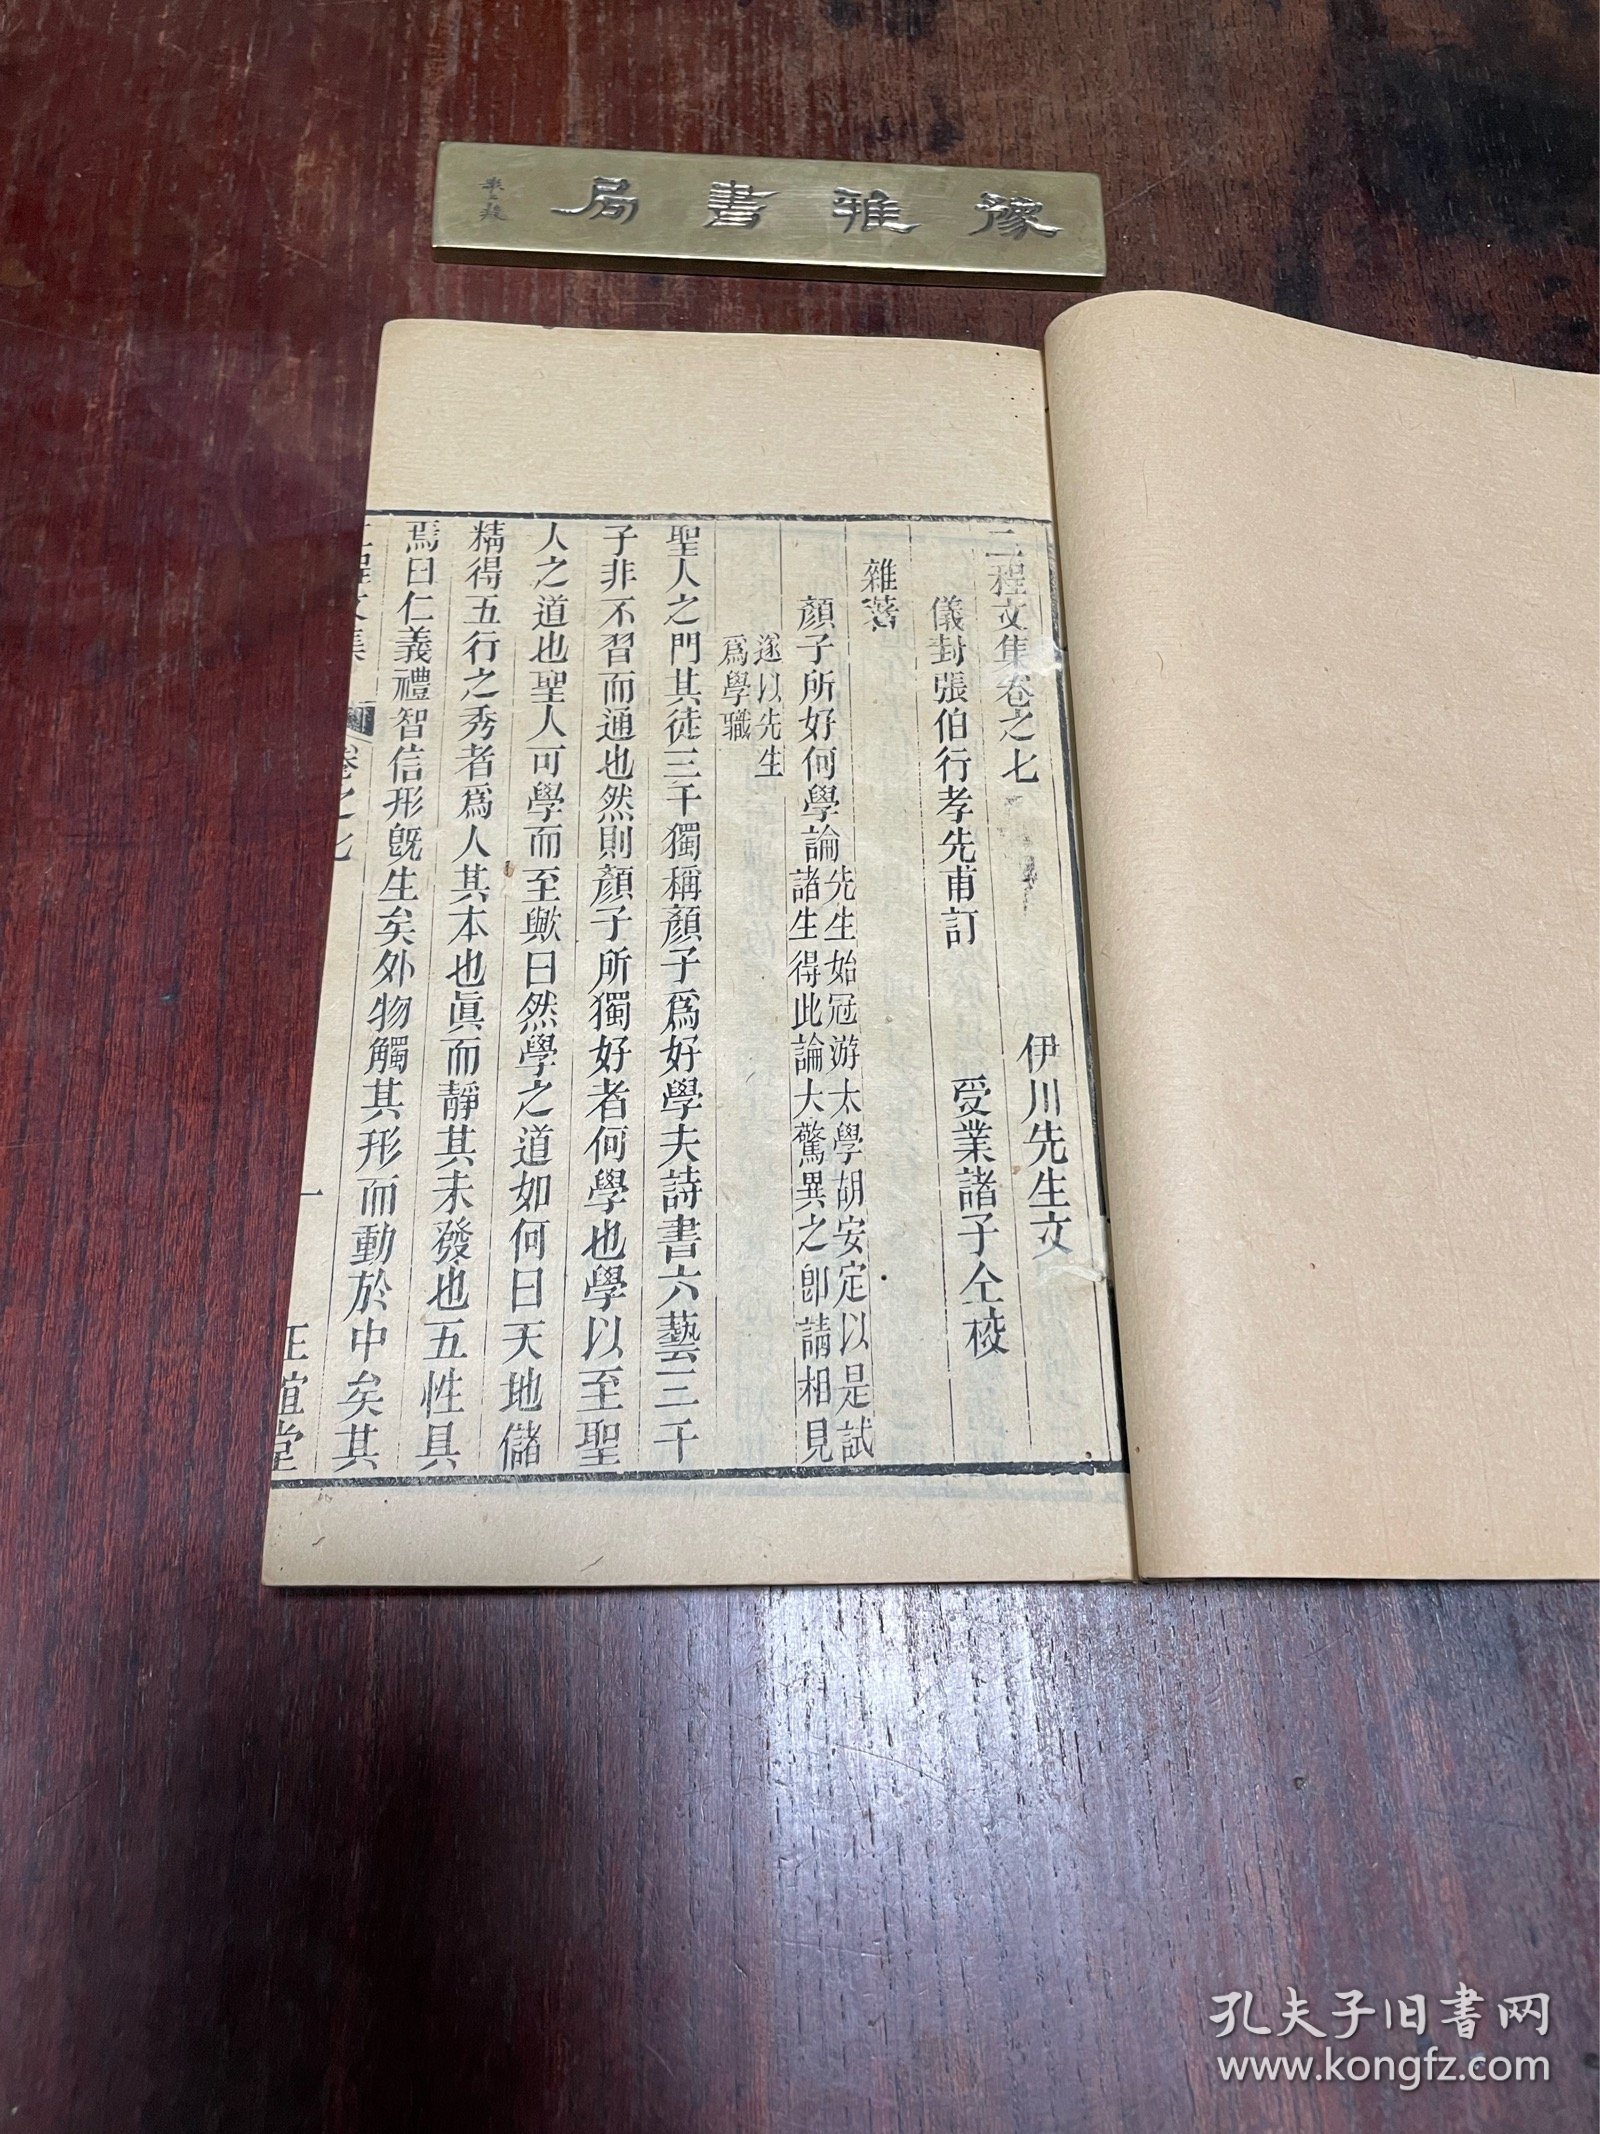 豫雅書局
二程文集卷之七
伊川先生文
儀封張伯行孝先甫訂
受業諸子仝校
雜著
顏子所好何學論
先生始冠游太學胡安定以是試
諸生得此論大驚異之卽請相見
遂以先生
爲學職
聖人之門其徒三千獨稱顏子爲好學夫詩書六藝三千
子非不習而通也然則顏子所獨好者何學也學以至聖
人之道也聖人可學而至歟曰然學之道如何曰天地儲
精得五行之秀者爲人其本也眞而靜其未發也五性具
焉曰仁義禮智信形旣生矣外物觸其形而動於中矣其
二程文集
卷之七
一
正誼堂
孔夫子旧书网
www.kongfz.com